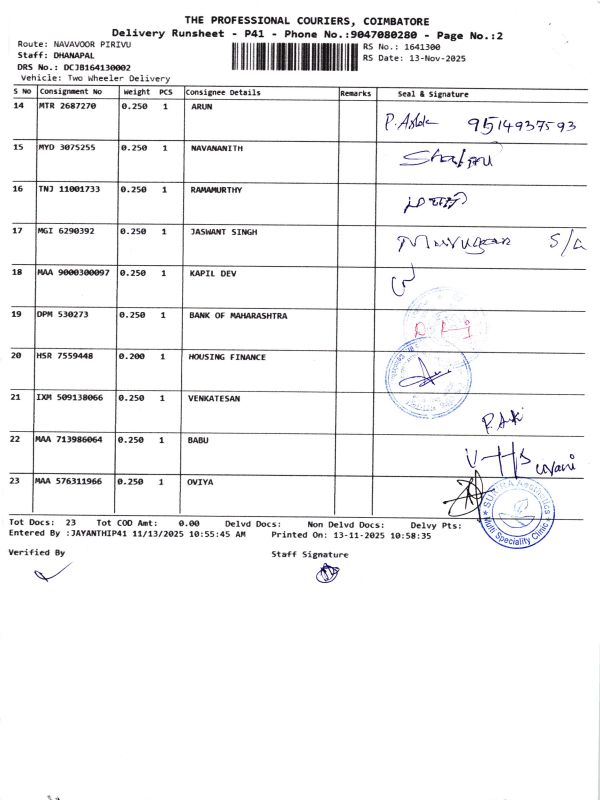 THE PROFESSIONAL COURIERS, COIMBATORE
Delivery Runsheet - P41 - Phone No.:9047080280 - Page No.:2
Route: NAVAVOOR PIRIVU
RS No.: 1641300
Staff: DHANAPAL
RS Date: 13-Nov-2025
DRS No.: DCJB164130002
Vehicle: Two Wheeler Delivery
S No Consignment No Weight PCS Consignee Details Remarks Seal & Signature
14 MTR 2687270 0.250 1 ARUN
P. Ashok 9514937593
15 MYD 3075255 0.250 1 NAVANANITH
16 TNJ 11001733 0.250 1 RAMAMURTHY
17 MGI 6290392 0.250 1 JASWANT SINGH
Murugan S/G
18 MAA 9000300097 0.250 1 KAPIL DEV
19 DPM 530273 0.250 1 BANK OF MAHARASHTRA
20 HSR 7559448 0.200 1 HOUSING FINANCE
21 IXM 509138066 0.250 1 VENKATESAN
22 MAA 713986064 0.250 1 BABU
23 MAA 576311966 0.250 1 OVIYA
Aesthetics
Multi Speciality Clinic
Tot Docs: 23 Tot COD Amt: 0.00 Delvd Docs: Non Delvd Docs: Delvy Pts:
Entered By :JAYANTHIP41 11/13/2025 10:55:45 AM Printed On: 13-11-2025 10:58:35
Verified By Staff Signature